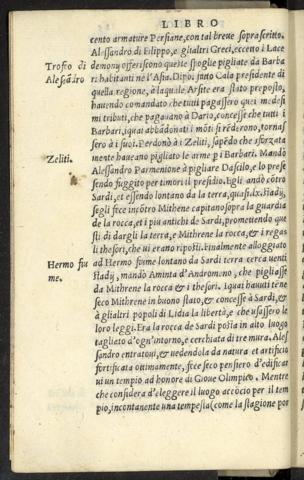 LIBRO
cento armature Persiane, con tal breue soprascritto.
Alessandro di Filippo, e gli altri Greci, eccetto i Lace
Trofeo di
Alesãdro
demony offeriscono queste spoglie pigliate da Barba
ri habitanti ne l'Asia. Dipoi fatto Cala presidente di
quella regione, à la quale Arsite era stato preposto,
hauendo comandato che tutti pagassero quei medesi
mi tributi, che pagauano à Dario, concesse che tutti i
Barbari, quai abbãdonati i mõti si rẽderono, tornas
sero à i suoi. Perdonò à i Zeliti, sapẽdo che sforzata
Zeliti.
mente haueano pigliato le arme p i Barbari. Mandò
Alessandro Parmenione à pigliare Dasilo, e lo prese
sendo fuggito per timori il presidio. Egli andò cõtro
Sardi, et essendo lontano da la terra, quasi.lx.stadij,
segli fece incõtro Mithrene capitano sopra la guardia
de la rocca, et i piu antichi de Sardi, promettendo que
sti di dargli la terra, e Mithrene la rocca, & i rega
li thesori, che ui erano riposti. Finalmente alloggiato
Hermo fiu
me.
ad Hermo fiume lontano da Sardi terra cerca uenti
stadij, mandò Aminta d'Andromeno, che pigliasse
da Mithrene la rocca & i thesori. i quai hauuti tẽne
seco Mithrene in buono stato, & concesse à Sardi, &
à gli altri popoli di Lidia la libertà, e che usassero le
loro leggi. Era la rocca de Sardi posta in alto luogo
tagliato d'ogn'intorno, e cerchiata di tre mura. Ales
sandro entratoui, & uedendola da natura et artificio
fortificata ottimamente, fece seco pensiero d'edificar
ui un tempio ad honore di Gioue Olimpico. Mentre
che considera d'eleggere il luogo accõcio per il tem
pio, incontanente una tempesta (come la stagione por